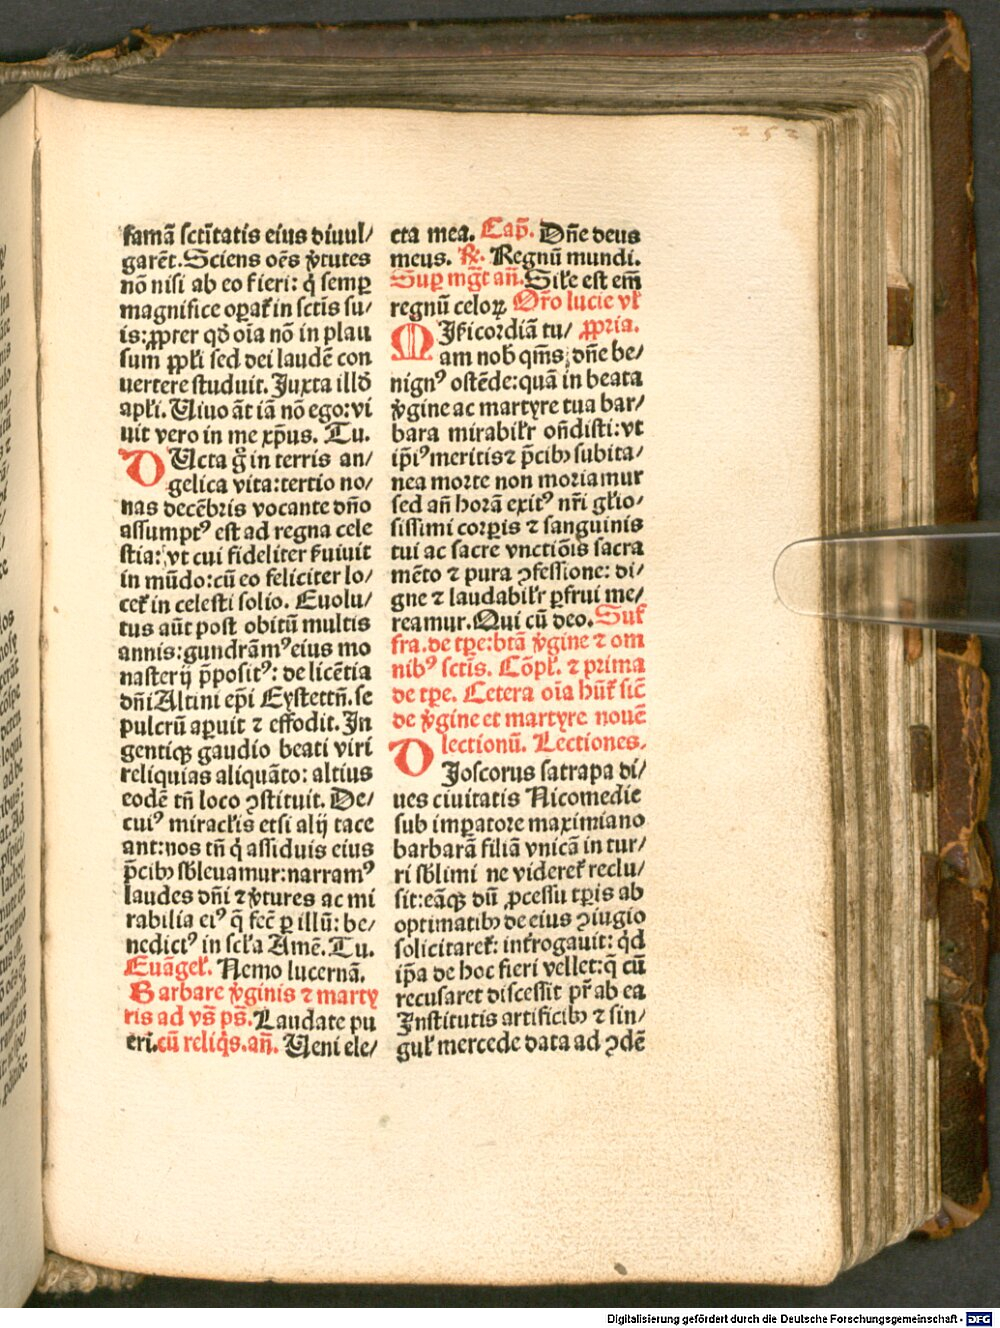 252
famā sctītatis eius diuul/
garēt. Sciens oēs v̄tutes
nō nisi ab eo fieri: q̄ semꝑ
magnifice oꝑat̄ in sctīs su/
is: ꝓpter qd̄ oīa nō in plau
sum ꝓpłi sed dei laudē con
uertere studuit. Juxta illd̄
apłi. Uiuo āt iā nō ego: vi
uit vero in me xp̄us. Tu.
DUcta g̊ in terris an/
gelica vita: tertio no/
nas decēbris vocante dn̄o
assumptꝰ est ad regna cele
stia: vt cui fideliter ẜuiuit
in mūdo: cū eo feliciter lo/
cet̄ in celesti solio. Euolu/
tus aūt post obitū multis
annis: gundrāmꝰ eius mo
nasterij p̄positꝰ: de licētia
dn̄i Altini ep̄i Eystettn̄. se
pulcrū aꝑuit ⁊ effodit. In
gentiqꝫ gaudio beati viri
reliquias aliquāto: altius
eodē tn̄ loco ꝯstituit. De/
cuiꝰ miracłis etsi alij tace
ant: nos tn̄ q̄ assiduis eius
p̄cibꝫ sb̄leuamur: narramꝰ
laudes dn̄i ⁊ v̄tures ac mi
rabilia eiꝰ q̄ fec̄ ꝑ illū: be/
nedictꝰ in scła Amē. Tu.
Euāgeł. Nemo lucernā.
Barbare v̄ginis ⁊ marty
ris ad vs̄ ps̄. Laudate pu
eri. cū reliq̄s. an̄. Ueni ele/
cta mea. Cap̄. Dn̄e deus
meus. ℟. Regnū mundi.
Suꝑ mḡt an̄. Siłe est em̄
regnū celoꝝ. Or̄o lucie vł
MIẜicordiā tu/ ꝓpria.
am nob̄ qm̄s, dn̄e be/
nignꝰ ostēde: quā in beata
v̄gine ac martyre tua bar/
bara mirabiłr on̄disti: vt
ip̄iꝰ meritis ⁊ p̄cibꝫ subita/
nea morte non moriamur
sed an̄ horā exitꝰ nr̄i głio/
sissimi corꝑis ⁊ sanguinis
tui ac sacre vnctiōis sacra
mēto ⁊ pura ꝯfessione: di/
gne ⁊ laudabiłr ꝑfrui me/
reamur. Qui cū deo. Suf
fra. de tꝑe: btā v̄gine ⁊ om
nibꝰ sctīs. Cōpł. ⁊ prima
de tꝑe. Cetera oīa hn̄t̄ sic̄
de v̄gine et martyre nouē
lectionū. Lectiones.
DJoscorus satrapa di/
ues ciuitatis Nicomedie
sub imꝑatore maximiano
barbarā filiā vnicā in tur/
ri sb̄limi ne videret̄ reclu/
sit: eāqꝫ dū ꝓcessu tꝑis ab
optimatibꝫ de eius ꝯiugio
solicitaret̄: int̄rogauit: qd̄
ip̄a de hoc fieri vellet: q̄ cū
recusaret discessit pr̄ ab ea
Institutis artificibꝫ ⁊ sin/
guł mercede data ad ꝯdē
Digitalisierung gefördert durch die Deutsche Forschungsgemeinschaft - DFG